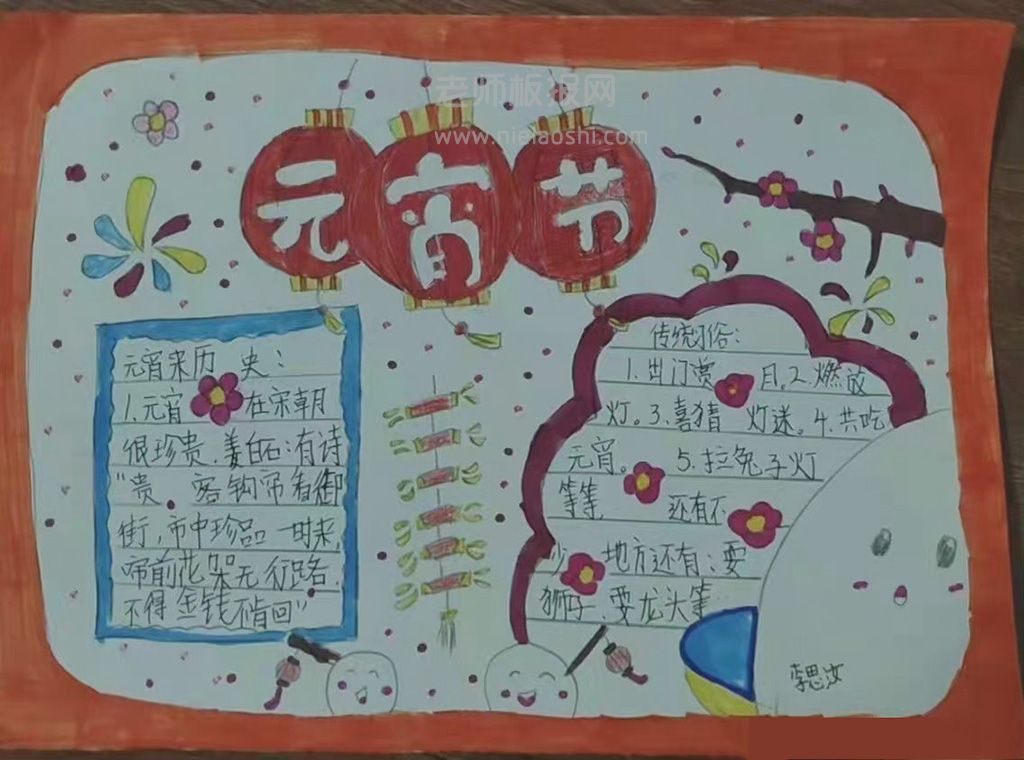 老师板报网
www.nielaoshi.com
元宵节
元宵来历 史：
1.元宵 在宋朝
很珍贵，姜白石：有诗
“贵 客钩帘看御
街，市中珍品一时来，
帘前花架无行路，
不得金钱不肯回”
传统习俗：
1.出门赏 月。2.燃放
灯。3.喜猜 灯迷。4.共吃
元宵。 5.拉兔子灯
等等 还有不
少 地方还有：耍
狮子、耍龙头等…
李思汝